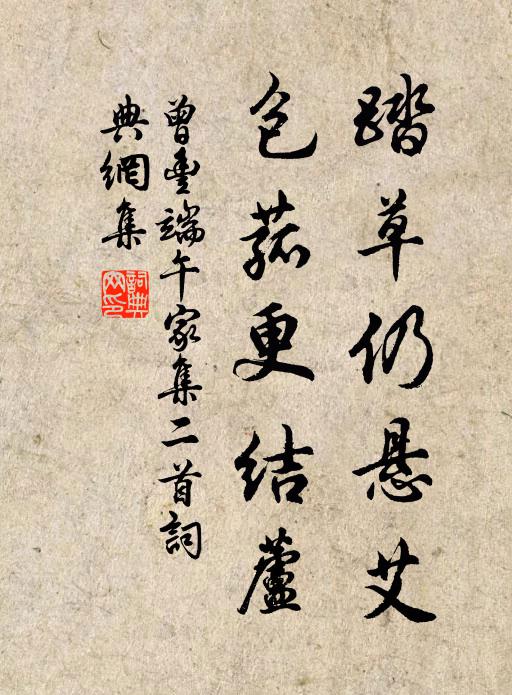 踏草仍悬艾
包菰更结蘆
曾豊端午家集二首詞
典網集
詞典网印